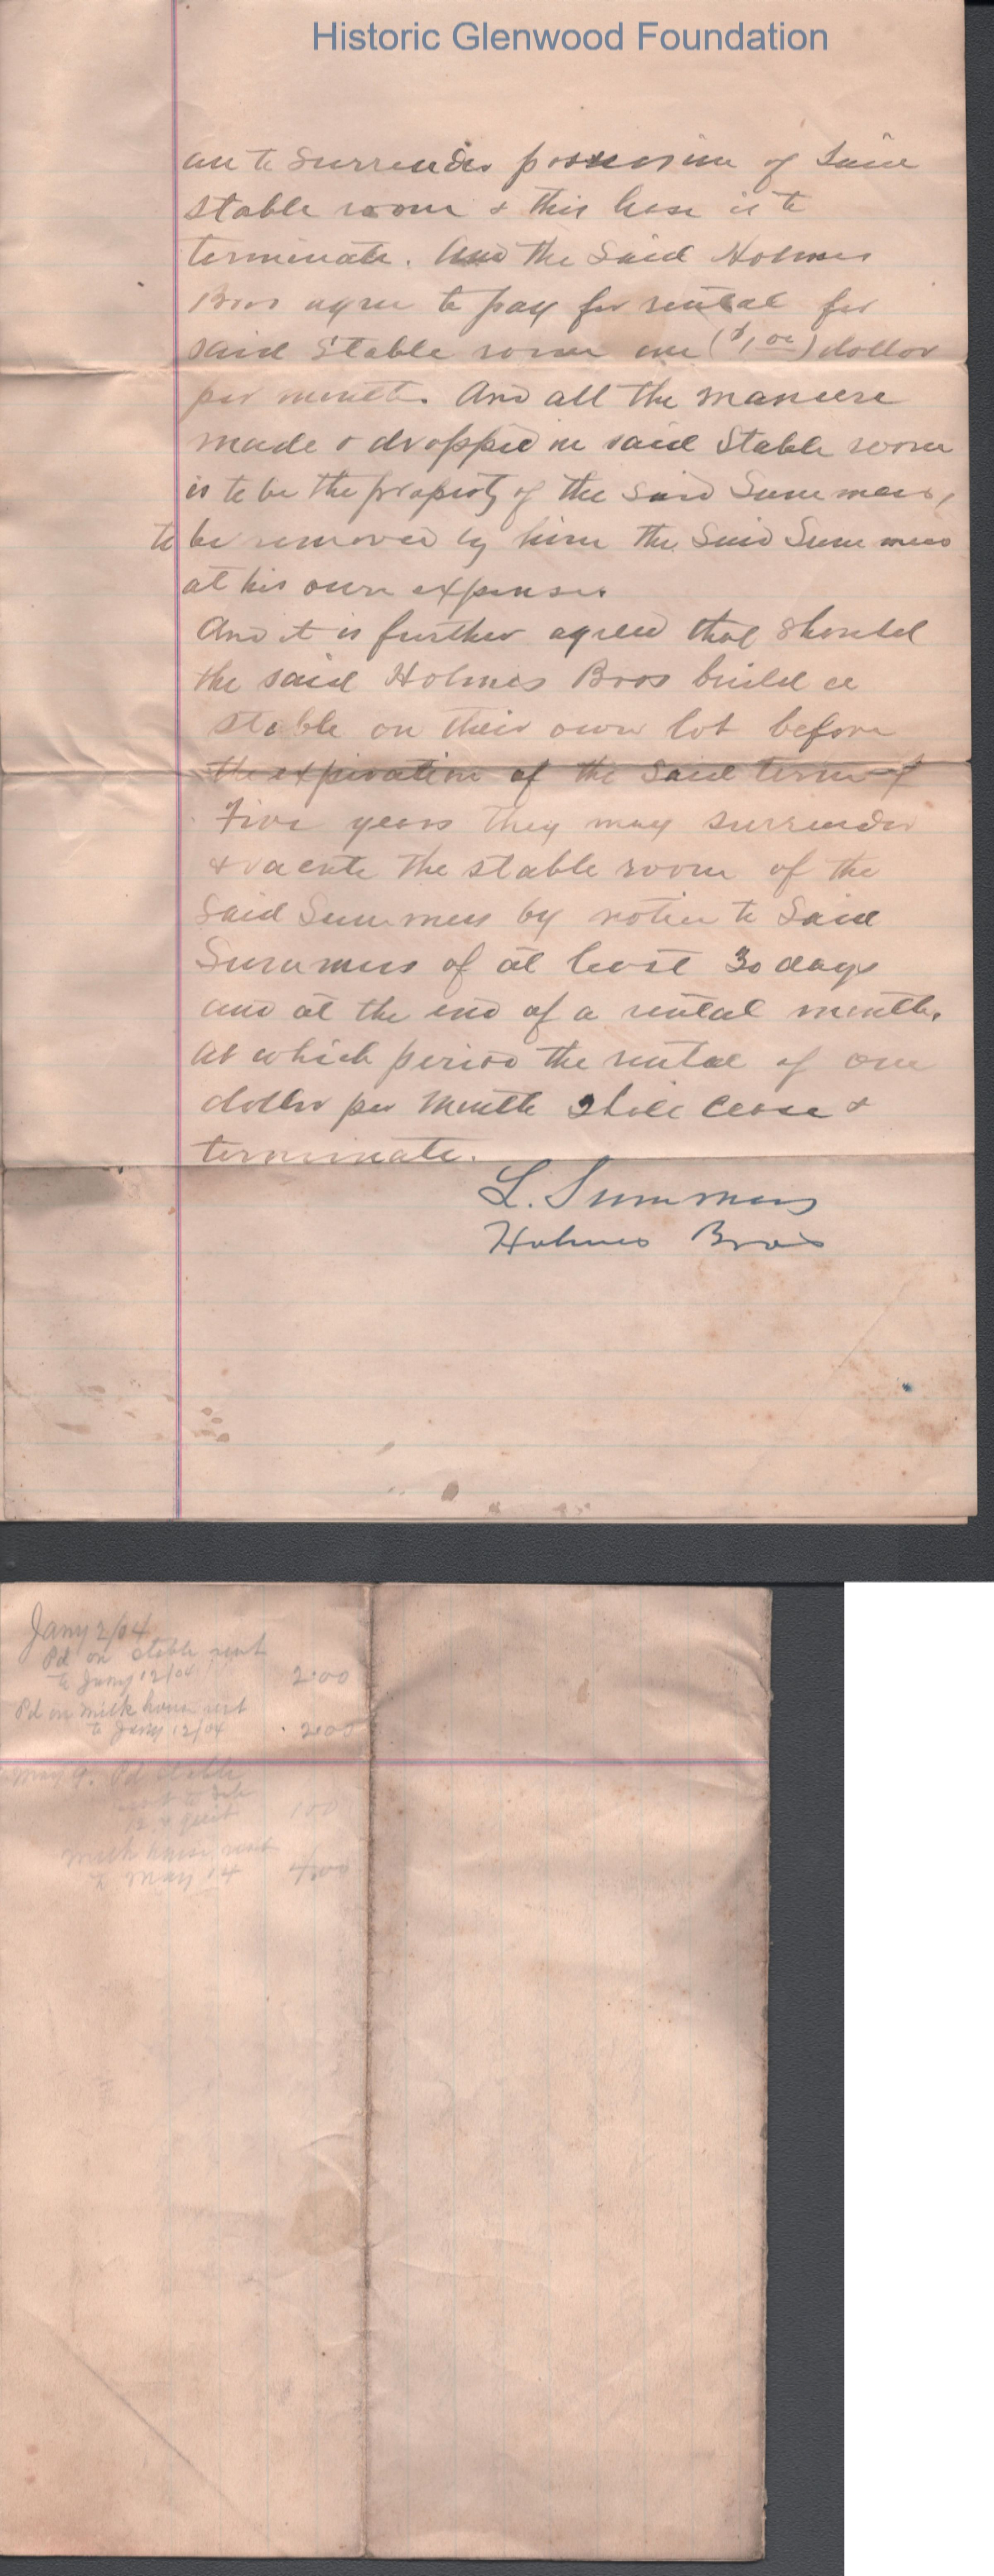 Historic Glenwood Foundation
are to surrender possession of said
stable room & this lease is to
terminate. And the said Holmes
Bros agree to pay for rental for
said stable room one ($1.00) dollar
per month. And all the manure
made & dropped in said stable room
is to be the property of the said Summers,
to be removed by him the said Summers
at his own expense.
And it is further agreed that should
the said Holmes Bros build a
stable on their own lot before
the expiration of the said term of
Five years they may surrender
& vacate the stable room of the
said Summers by notice to said
Summers of at least 30 days
and at the end of a rental month.
At which period the rental of one
dollar per month shall cease &
terminate.
L. Summers
Holmes Bros
Jany 2/04
Pd on stable rent
to Jany 12/04 2.00
Pd on milk house rent
to Jany 12/04 2.00
May 9. Pd stable
rent to
& quit 1.00
Milk house rent
to May 14 4.00